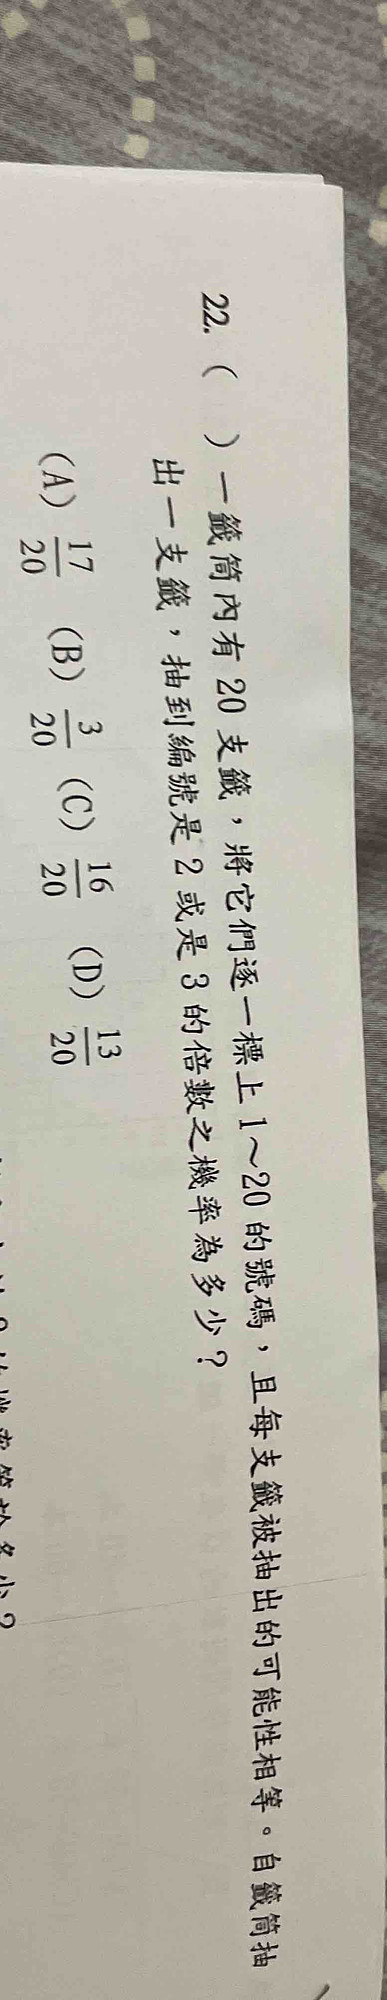 22. (　) 一籤筒內有 20 支籤，將它們逐一標上 1～20 的號碼，且每支籤被抽出的可能性相等。自籤筒抽
出一支籤，抽到編號是 2 或是 3 的倍數之機率為多少？
(A) 17/20 (B) 3/20 (C) 16/20 (D) 13/20